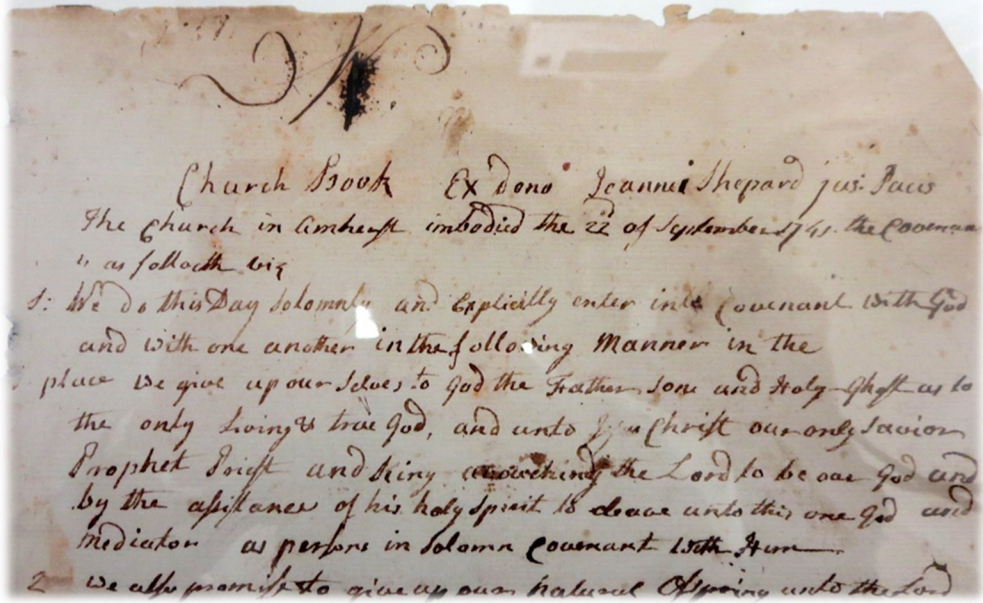 Church Book Ex dono Jeannis Shepard jus: Pacis
The Church in Amherst imbodied the 22d of September 1741. the Covenan
is as followth viz
1: We do this Day Solomnly and Explicitly enter into Covenant with God
and with one another in the following Manner in the
place we give up our Selves to God the Father Sone and Holy Ghost as to
the only Living & true God, and unto Jesus Christ our only Savior
Prophet Priest and King avowching the Lord to be our God and
by the assistance of his holy Spirit to cleave unto this one God and
Mediator as persons in Solomn Covenant with Him
2 we also promise to give up our Natural Ofspring unto the Lord